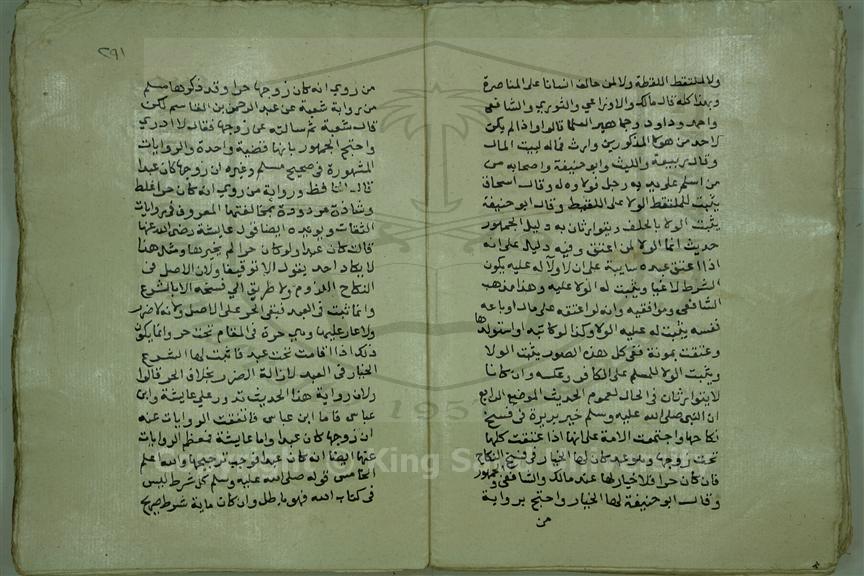 ولا لملتقط اللقطة ولا لمن حالف انسانا على المناصرة
وبهذا كله قال مالك والاوزاعي والثوري والشافعي
واحمد وداود وجماهير العلما قالوا واذا لم يكن
لاحد من هولا المذكورين وارث فماله لبيت المال
وقال ربيعة والليث وابو حنيفة واصحابه من
من اسلم على يديه رجل فولاوه له وقال اسحاق
يثبت للملتقط الولا على اللقيط وقال ابو حنيفة
يثبت الولا بالحلف ويتوارثان به دليل الجمهور
حديث انما الولا لمن اعتق وفيه دليل على انه
اذا اعتق عبده سايبة على ان لا ولا له عليه يكون
الشرط لاغيا ويثبت له الولا عليه وهذا مذهب
الشافعي وموافقيه وانه لو اعتقه على مال او باعه
نفسه يثبت له عليه الولا وكذا لو كاتبه او استولدها
وعتقت بموته ففي كل هذه الصور يثبت الولا
ويثبت الولا للمسلم على الكافر وعكسه وان كانا
لا يتوارثان في الحال لعموم الحديث الموضع الرابع
ان النبي صلى الله عليه وسلم خير بريرة في فسخ
نكاحها واجتمعت الامة على انها اذا عتقت كلها
تحت زوجها وهو عبد كان لها الخيار في فسخ النكاح
فان كان حرا فلا خيار لها عند مالك والشافعي وجمهور
وقال ابو حنيفة لها الخيار واحتج برواية
من
٢٩١
من روى انه كان زوجها حرا وقد ذكرها مسلم
من رواية شعبة عن عبد الرحمن بن القاسم لكن
قال شعبة ثم سالته عن زوجها فقال لا ادري
واحتج الجمهور بانها قضية واحدة والروايات
المشهورة في صحيح مسلم وغيره ان زوجها كان عبدا
قال الحفاظ ورواية من روى انه كان حرا غلط
وشاذة مردودة بمخالفتها المعروف في روايات
الثقات ويويده ايضا قول عايشة رضي الله عنها
قالت كان عبدا ولو كان حرا لم يخيرها ومثل هذا
لا يكاد احد يقوله الا توقيفا ولان الاصل في
النكاح اللزوم ولا طريق الى فسخه الا بالشرع
وانما ثبت في العبد فبقي الحر على الاصل ولانه لا ضرر
ولا عار عليها وهي حرة في المقام تحت حر وانما يكون
ذلك اذا اقامت تحت عبد فاثبت لها الشرع
الخيار في العبد لازالة الضرر بخلاف الحر قالوا
ولان رواية هذا الحديث تدور على عايشة وابن
عباس فاما ابن عباس فاتفقت الروايات عنه
ان زوجها كان عبدا واما عايشة فمعظم الروايات
عنها ايضا انه كان عبدا فوجب ترجيحها والله اعلم
الخامس قوله صلى الله عليه وسلم كل شرط ليس
في كتاب الله فهو باطل وان كان ماية شرط صريح